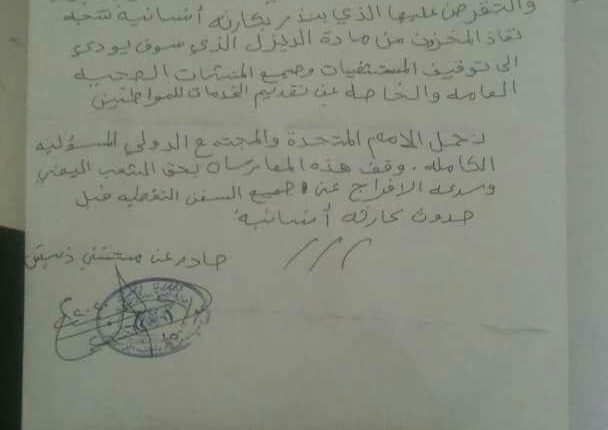 والتقرصن عليها الذي ينذر بكارثه أنسانيه نتيجه
نفاذ المخزون من مادة الديزل الذي سوف يودي
الى توقيف المستشفيات وجميع المنشئات الصحيه
العامه والخاصه عن تقديم الخدمات للمواطنين
نحمل الامم المتحدة والمجتمع الدولي المسؤليه
الكامله. وقف هذه الممارسات بحق الشعب اليمني
وسرعه الافراج عن جميع السفن النفطيه قبل
حدوث كارثه أنسانيه
صادر عن مستشفى